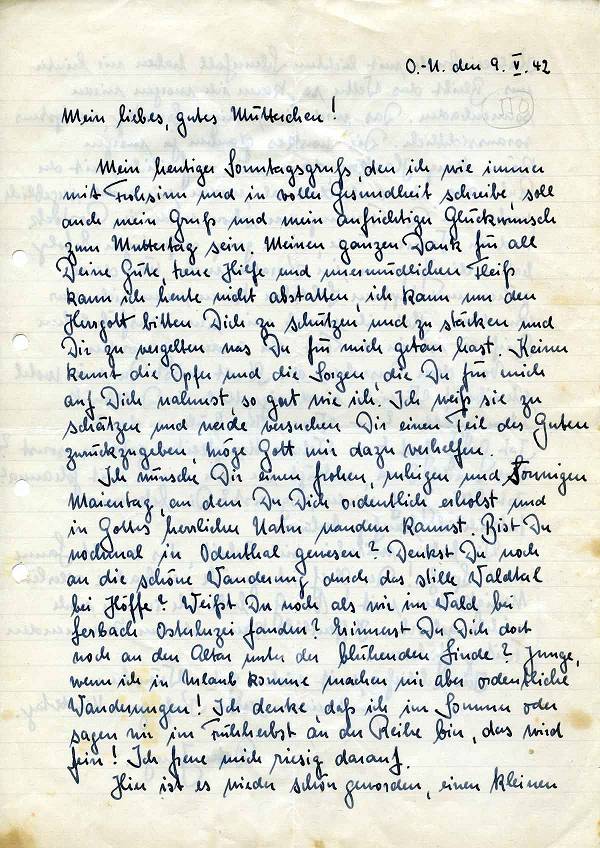 O.-U. den 9. V. 42
110
Mein liebes, gutes Mütterchen!
Mein heutiger Sonntagsgruß, den ich wie immer
mit Frohsinn und in voller Gesundheit schreibe, soll
auch mein Gruß und mein aufrichtiger Glückwunsch
zum Muttertag sein. Meinen ganzen Dank für all
Deine Güte, treue Liebe und unermüdlichen Fleiß
kann ich heute nicht abstatten, ich kann nur den
Herrgott bitten Dich zu schützen und zu stärken und
Dir zu vergelten was Du für mich getan hast. Keiner
kennt die Opfer und die Sorgen, die Du für mich
auf Dich nahmst, so gut wie ich. Ich weiß sie zu
schätzen und werde versuchen Dir einen Teil des Guten
zurückzugeben, möge Gott mir dazu verhelfen.
Ich wünsche Dir einen frohen, ruhigen und sonnigen
Maientag, an dem Du Dich ordentlich erholst und
in Gottes herrlicher Natur wandern kannst. Bist Du
nochmal in Odenthal gewesen? Denkst Du noch
an die schöne Wanderung durch das stille Waldtal
bei Höffe? Weißt Du noch als wir im Wald bei
Lerbach Osterluzei fanden? Erinnerst Du Dich dort
noch an den Altar unter der blühenden Linde? Junge,
wenn ich in Urlaub komme machen wir aber ordentliche
Wanderungen! Ich denke, daß ich im Sommer oder
sagen wir im Frühherbst an der Reihe bin, das wird
fein! Ich freue mich riesig darauf.
Hier ist es wieder schön geworden, einen kleinen